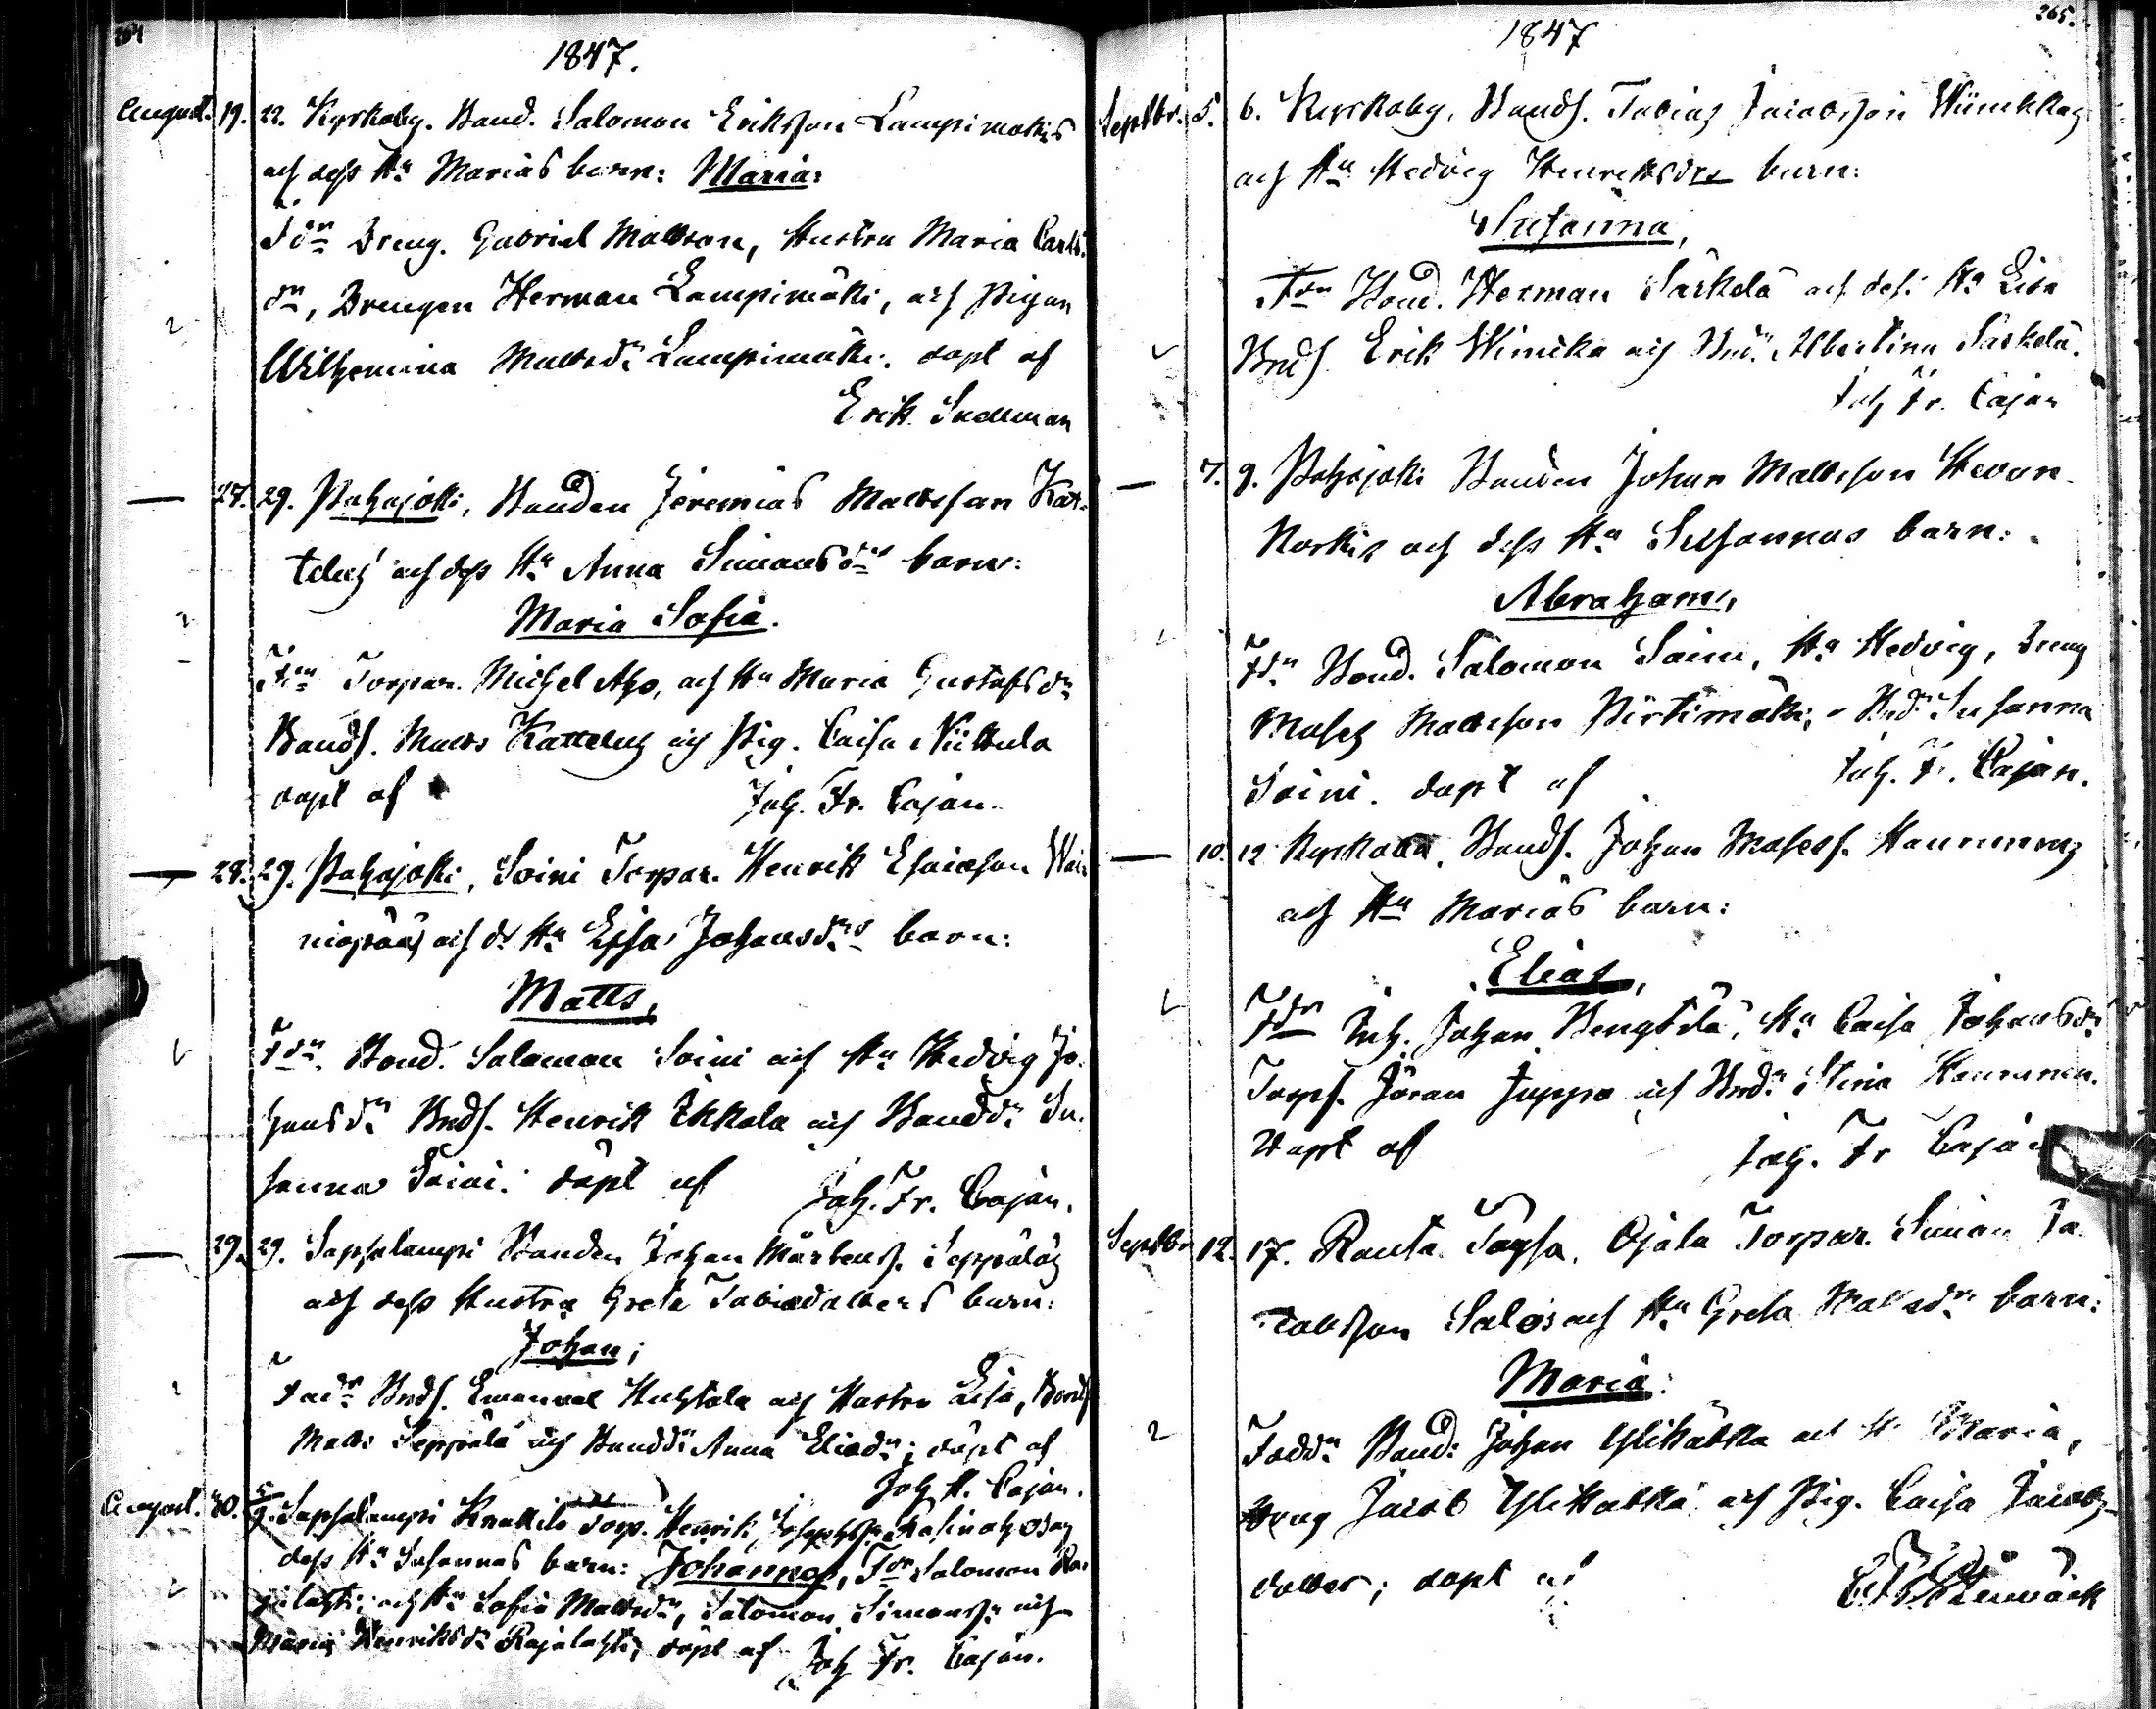 264
1847.
August. 19. 22. Kyrkoby. Bond. Salomon Eriksson Lampimäkis
och dess Hu Marias barn: Maria:
Fdr Dreng. Gabriel Mattson, Hustru Maria Carls
dr, Drengen Herman Lampimäki, och Pigan
Wilhemina Mattsdr Lampimäki. döpt af
Erik Snellman
— 27. 29. Pahajoki, Bonden Jeremias Mattsson Kat-
telus och dess Hu Anna Simonsdrs barn:
Maria Sofia.
Fdr Torpar. Michel Aho, och Hu Maria Gustafsdr
Bonds. Matts Kattelus och Pig. Caisa Niittula
döpt af Joh. Fr. Cajan.
— 28. 29. Pahajoki, Soini Torpar. Henrik Esaiasson Wai-
niopääs och ds Hu Lisa Johansdrs barn:
Matts,
Fdr. Bond. Salomon Soini och Hu Hedvig Jo-
hansdr Bnds. Henrik Ekkola och Bonddr Su-
sanna Soini. döpt af Joh. Fr. Cajan.
— 29. 29. Saphalampi Bonden Johan Mårtenss. Seppäläs
och dess Hustru Greta Tobiædotters barn:
Johan;
Fadr Bnds. Emanuel Huhtala och Hustru Lisa, Bonds
Matts Seppälä och Bonddr Anna Eliædr; döpt af
Joh. Fr. Cajan.
August. 30. 5/9. Saphalampi Knuttila Torp. Henrik Josephss.
dess Hu Susannas barn: Johannes, Fdr Salomon Ra-
jalahti och Hu Sofia Mattsdr, Salomon Simonss. och
Maria Henriksdr Rajalahti, döpt af Joh Fr. Cajan.
265.
1847
Septbr. 5. 6. Kyrkoby, Bonds. Tobias Jacobsson Wiinikkas
och Hu Hedvig Henriksdrs barn:
Susanna,
Fdr Bond. Herman Särkelä och des. Hu Lisa
Bnds. Erik Winikka och Bndr Albertina Särkelä.
Joh Fr. Cajan
— 7. 9. Pahajoki Bonden Johan Mattsson Hevon-
koskis och dess Hu Susannas barn:
Abraham,
Fdr Bond. Salomon Soini, Hu Hedvig, Dreng
Moses Mattsson Pirttimäki, Bndr Susanna
Soini. döpt af Joh. Fr. Cajan.
— 10. 12 Bonds. Johan Mosess. Haurunens
och Hu Marias barn:
Elias,
Fdr Inh. Johan Bengtilä, Hu Caisa Johansdr
Torps. Jöran Juppo och Bndr Stina Haurunen.
Döpt af Joh. Fr Cajan
Septbr 12. 17. Ranta Töysä, Ojala Torpar. Simon Ja-
cobsson Salos och Hu Greta Mattsdrs barn:
Maria:
Faddr Bond: Johan Ylikätkä och H. Maria,
Dreng Jacob Ylikätkä och Pig. Caisa Jacobs
dotter; döpt af Stenbäck